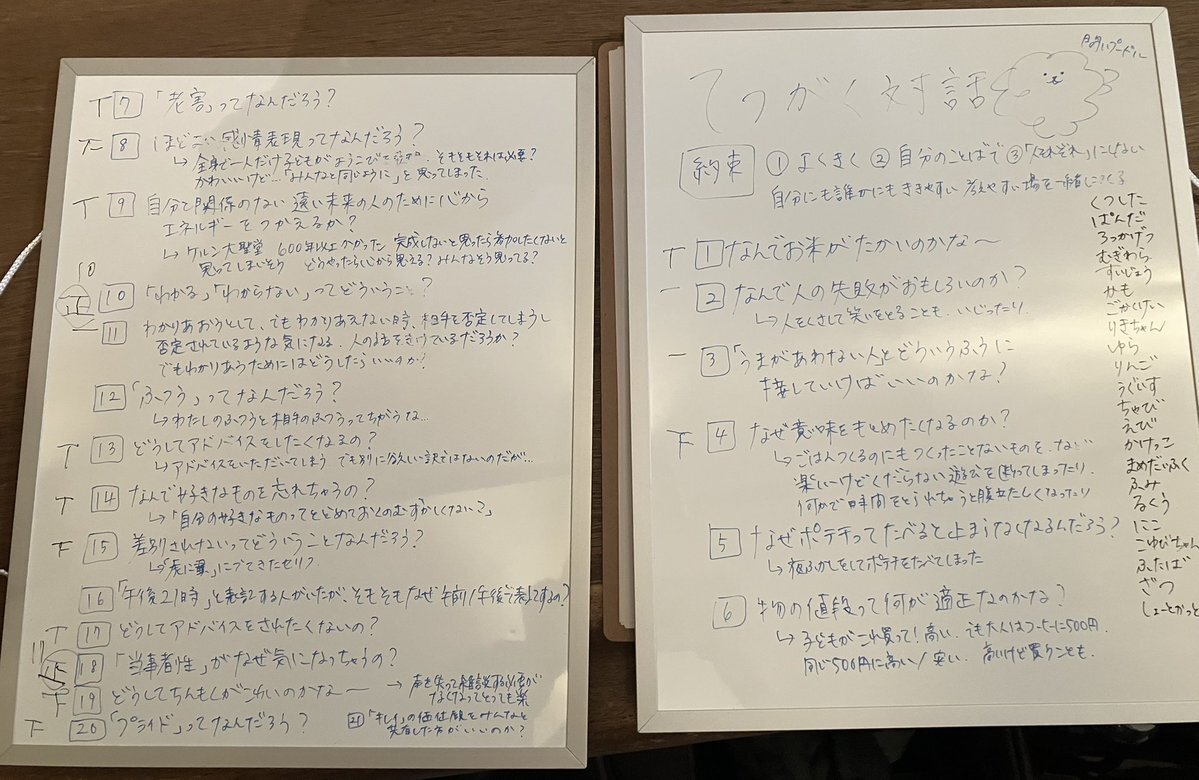 てつがく対話
問いプードル
約束 ① よくきく ② 自分のことばで ③「人それぞれ」にしない
自分にも誰かにもききやすい 考えやすい場を一緒につくる
T 1 なんでお米がたかいのかな〜
一 2 なんで人の失敗がおもしろいのか?
↳人をくさして笑いをとることも、いじったり
一 3 「うまがあわない人」とどういうふうに
接していけばいいのかな?
F 4 なぜ意味をもとめたくなるのか?
↳ごはんつくるのにもつくったことないものを、など
楽しいけどくだらない遊びを断ってしまったり、
何かで時間をとられちゃうと腹立たしくなったり
5 なぜポテチってたべると止まらなくなるんだろう?
↳夜ふかしをしてポテチをたべてしまった
6 物の値段って何が適正なのかな?
↳子どもがこれ買って!高い、でも大人はコーヒーに500円、
同じ500円に高い/安い、高いけど買うことも、
くつした
ぱんだ
ろっかげつ
むぎわら
すいじょう
かも
ごかくけい
りきちゃん
ゆら
りんご
うぐいす
ちゃび
えび
かけっこ
まめだいふく
ふみ
るくう
にこ
こゆびちゃん
ふたば
ざつ
しょーとかっと
T 7 「老害」ってなんだろう?
F 8 ほどこい感情表現ってなんだろう?
↳全身で一人だけ子どもがよろこびを、そもそもそれは必要?
かわいいけど…「みんなと同じように」を思ってしまった、
T 9 自分と関係のない遠い未来の人のために心から
エネルギーをつかえるか?
↳ケルン大聖堂 600年以上かかった 完成しないと思ったら参加したくないと
思ってしまいそう どうやったら心から思える?みんなそう思ってる?
10
10 「わかる」「わからない」ってどういうこと?
11 わかりあおうとして、でもわかりあえない時、相手を否定してしまうし
否定されているような気になる、人の話をきけているだろうか?
でもわかりあうためにはどうしたらいいのか?
12 「ふつう」ってなんだろう?
↳わたしのふつうと相手のふつうってちがうな…
T 13 どうしてアドバイスをしたくなるの?
↳アドバイスをいただいてしまう でも別に欲しい訳ではないのだが…
T 14 なんで好きなものを忘れちゃうの?
↳「自分の好きなものってとどめておくのむずかしくない?」
F 15 差別されないってどういうことなんだろう?
↳「虎に翼」にでてきたセリフ
16 「午後21時」と表記する人がいたが、そもそもなぜ午前/午後で表すの?
T 17 どうしてアドバイスをされたくないの?
17
18 「当事者性」がなぜ気になっちゃうの?
F 19 どうしてちんもくがこわいのかな〜 → 声を失って雑談する必要が
なくなってとっても楽
F 20 「プライド」ってなんだろう?
21 「キレイ」の価値観をみんなと
共有した方がいいのか?